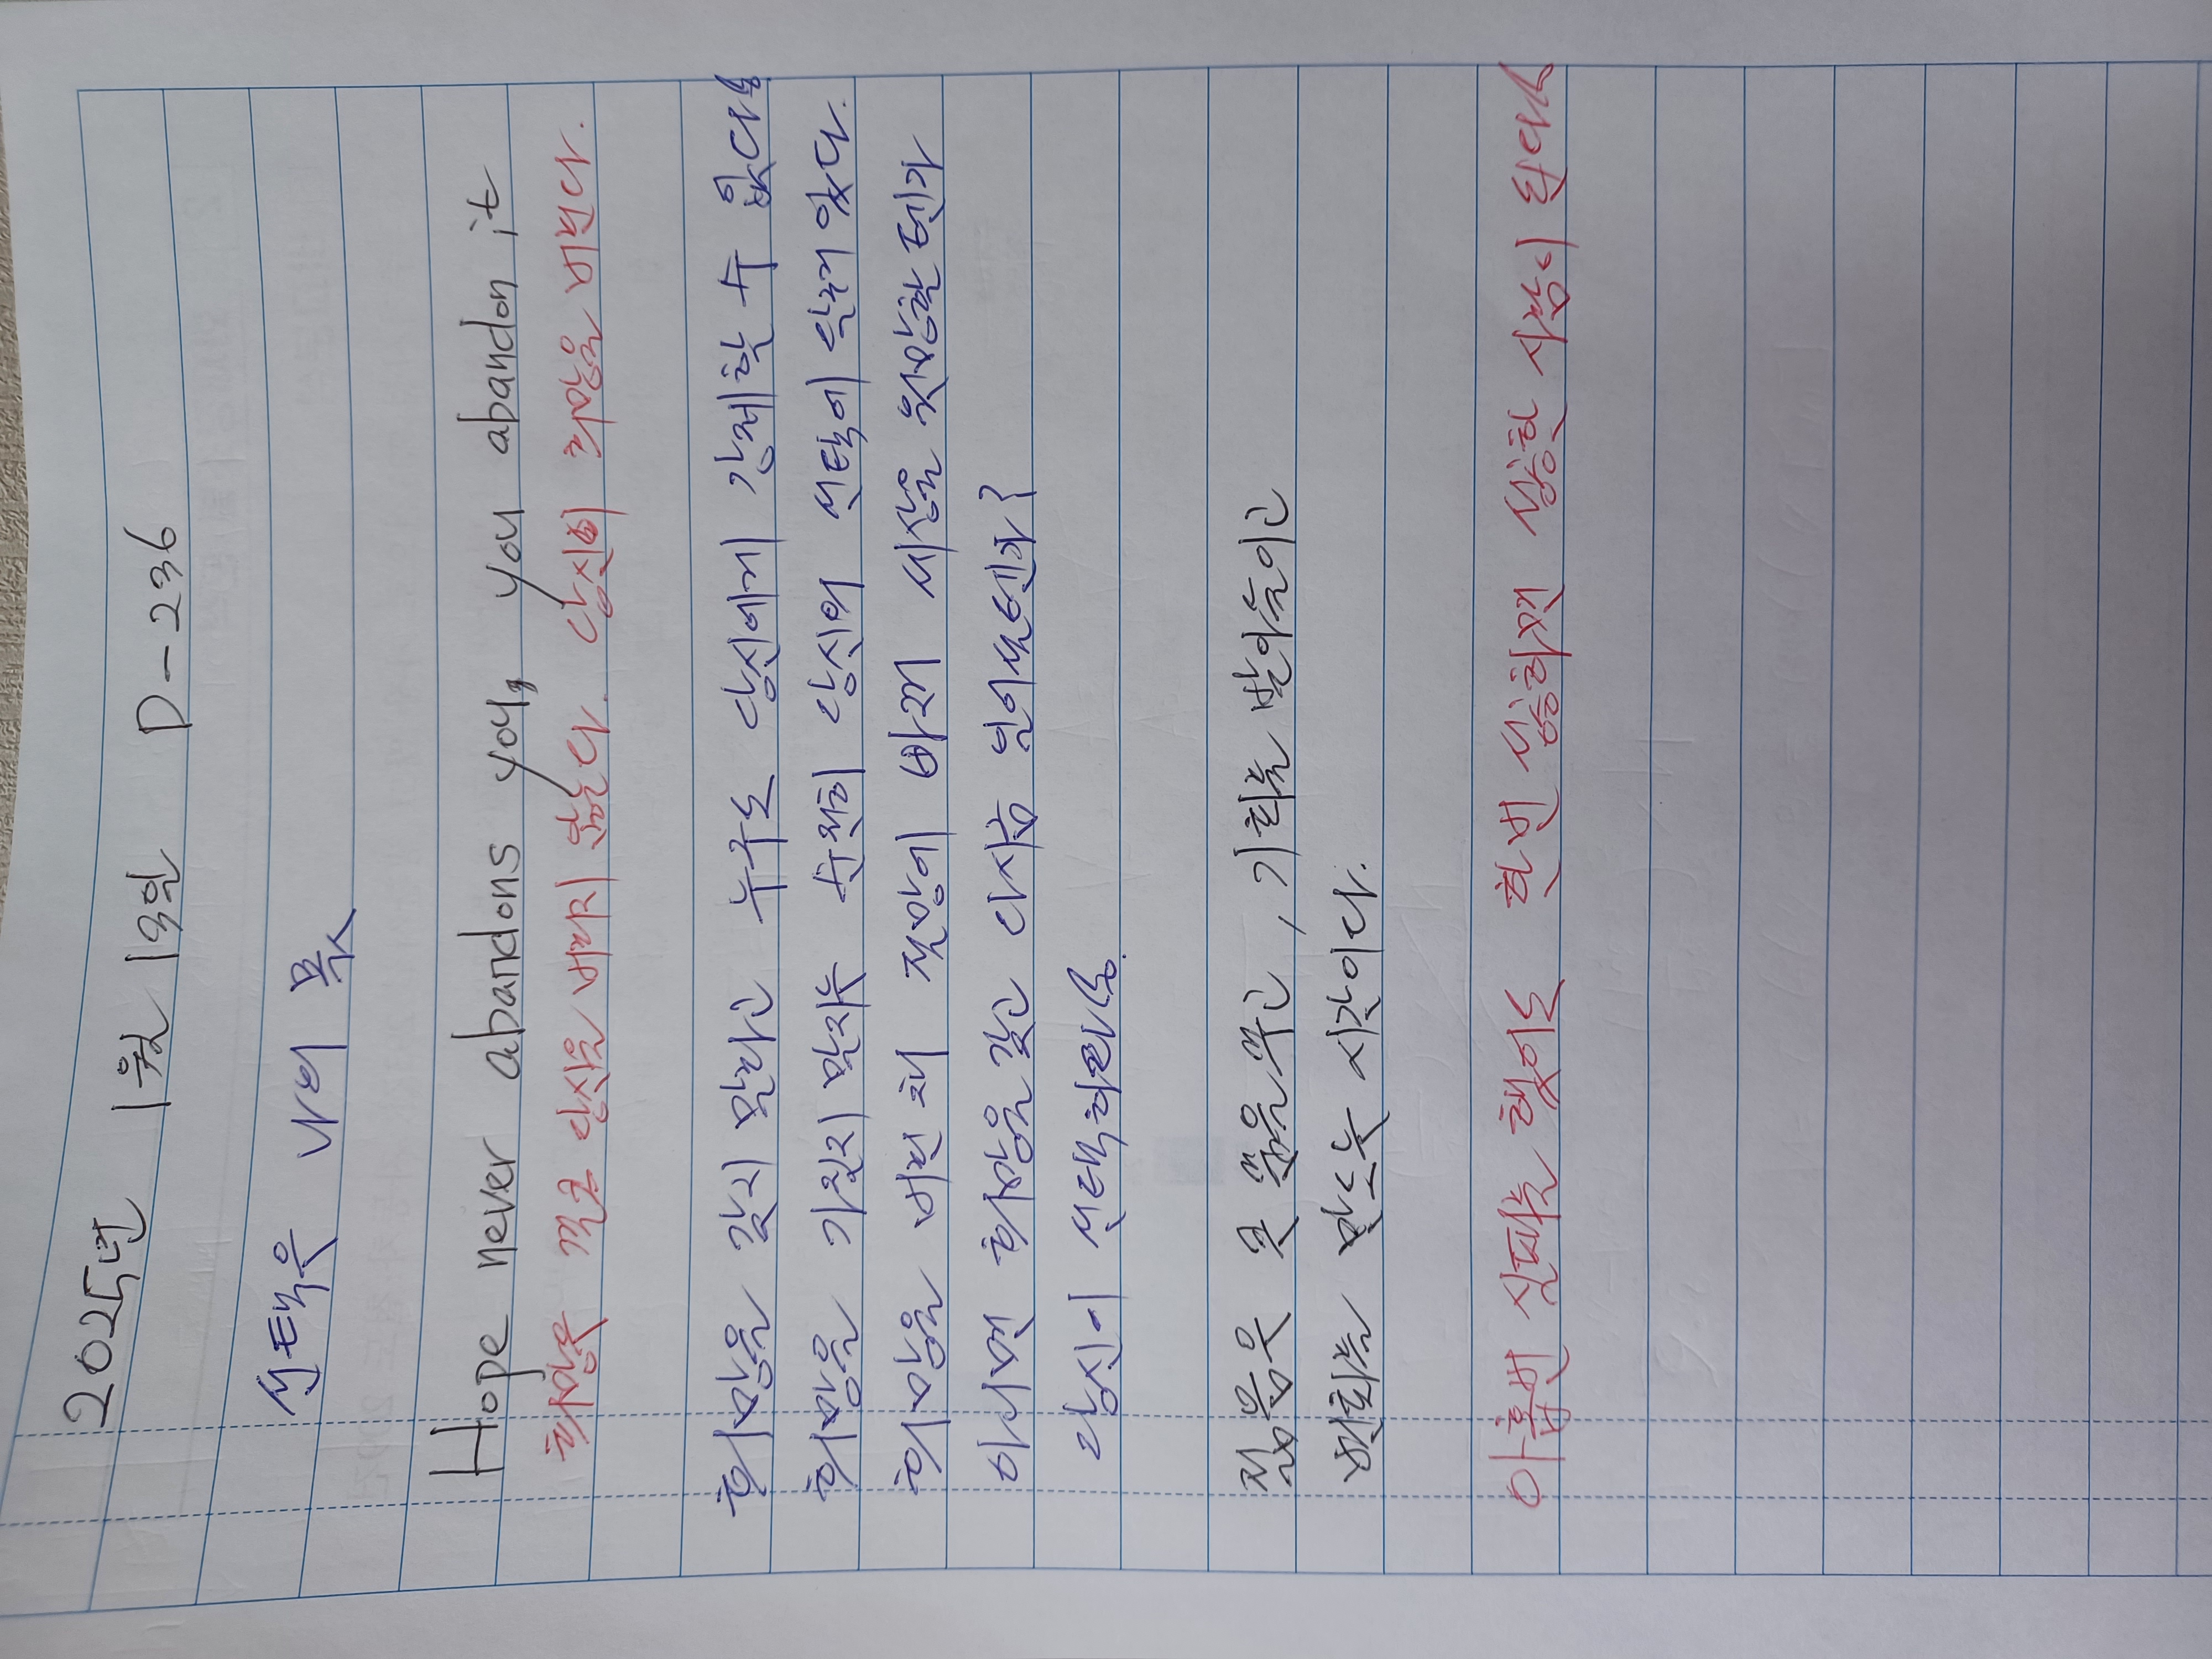 2025년 1월 19일 D-236
선택은 나의 몫
Hope never abandons you, you abandon it
희망은 결코 당신을 버리지 않는다. 당신이 희망을 버린다.
희망을 갖지 말라고 누구도 당신에게 강제할 수 없다.
희망을 가질지 말지는 순전히 당신의 선택에 달려있다.
희망을 버린 채 절망에 빠져 세상을 원망할텐가
아니면 희망을 갖고 다시금 일어설텐가?
당신이 선택하라.
젊음은 큰 꿈을 꾸고, 기회를 받아들이고
변화를 만드는 시간이다.
아홉번 실패를 했어도 한번 성공하면 성공한 사람이 된다.